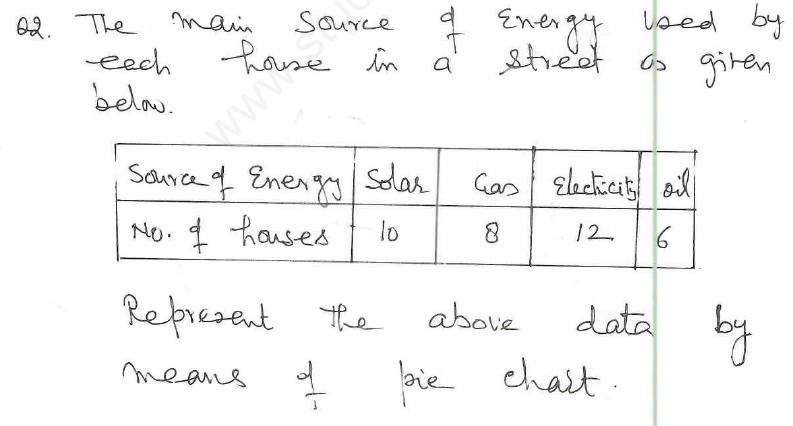 Q2. The main source of Energy used by
each house in a street is given
below.
Source of Energy Solar Gas Electricity oil
No. of houses 10 8 12 6
Represent the above data by
means of pie chart.